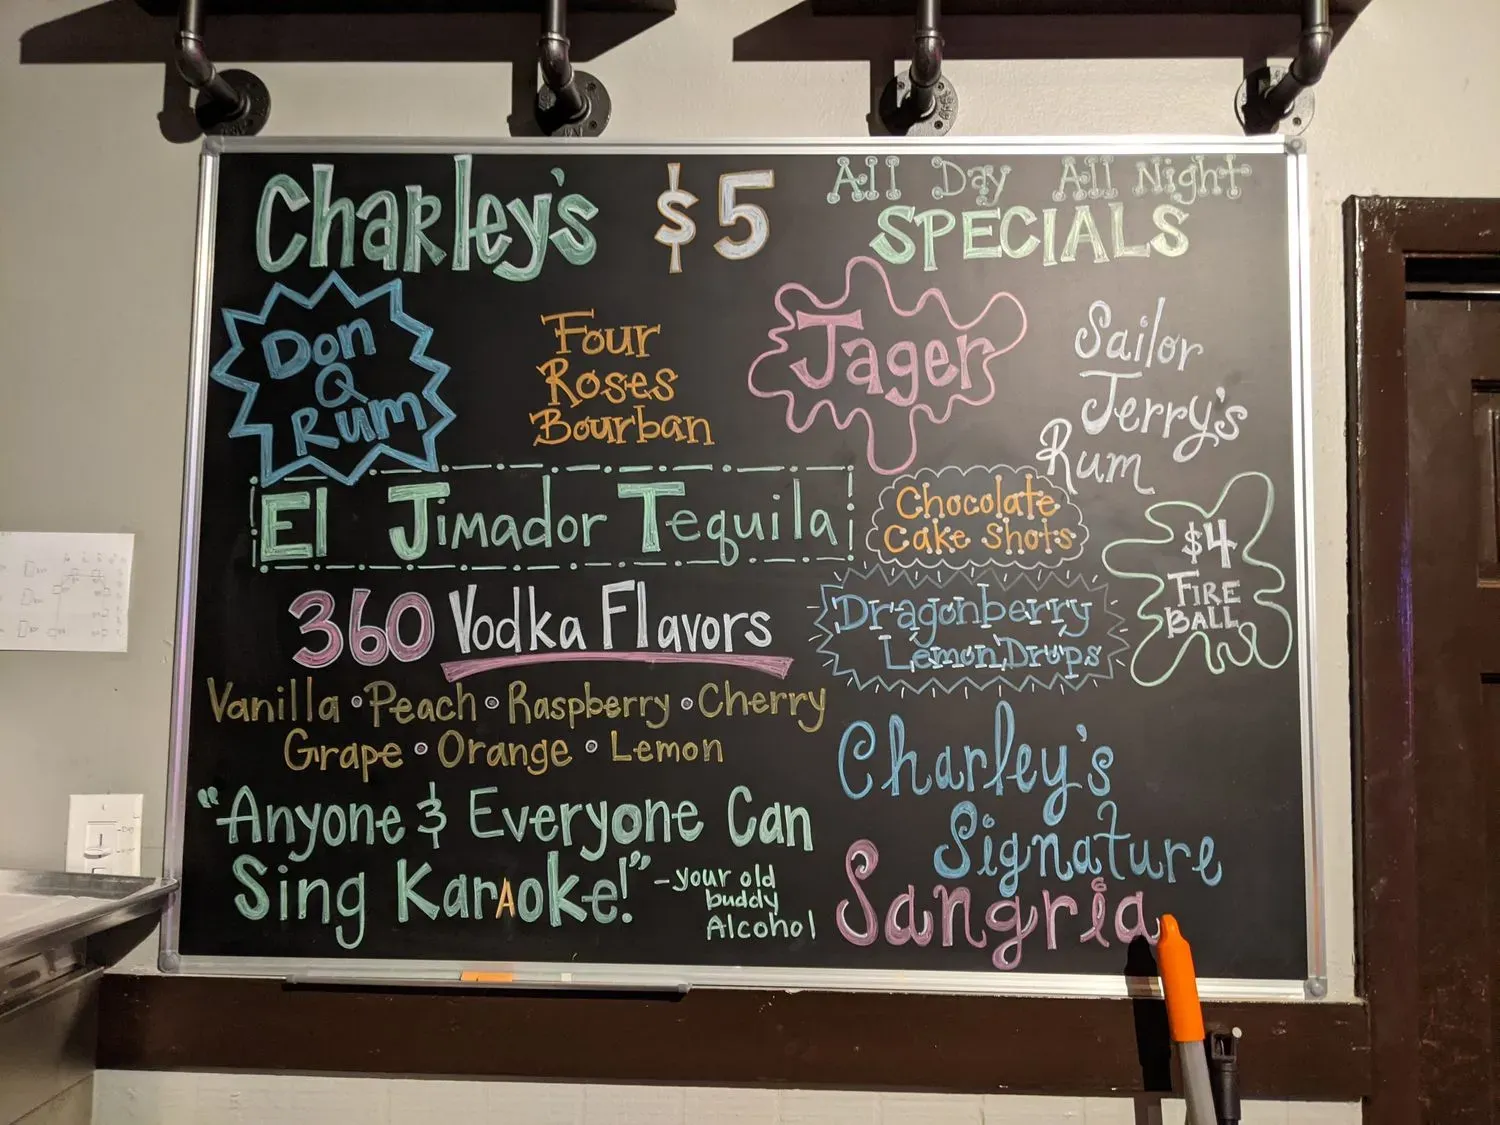 Charley's $5
All Day All Night
SPECIALS
Don
Q
Rum
Four
Roses
Bourban
Jager
Sailor
Jerry's
Rum
El Jimador Tequila
Chocolate
Cake Shots
$4
FIRE
BALL
360 Vodka Flavors
Dragonberry
Lemon Drops
Vanilla • Peach • Raspberry • Cherry
Grape • Orange • Lemon
Charley's
Signature
Sangria
"Anyone & Everyone Can
Sing Karaoke!"
-your old
buddy
Alcohol